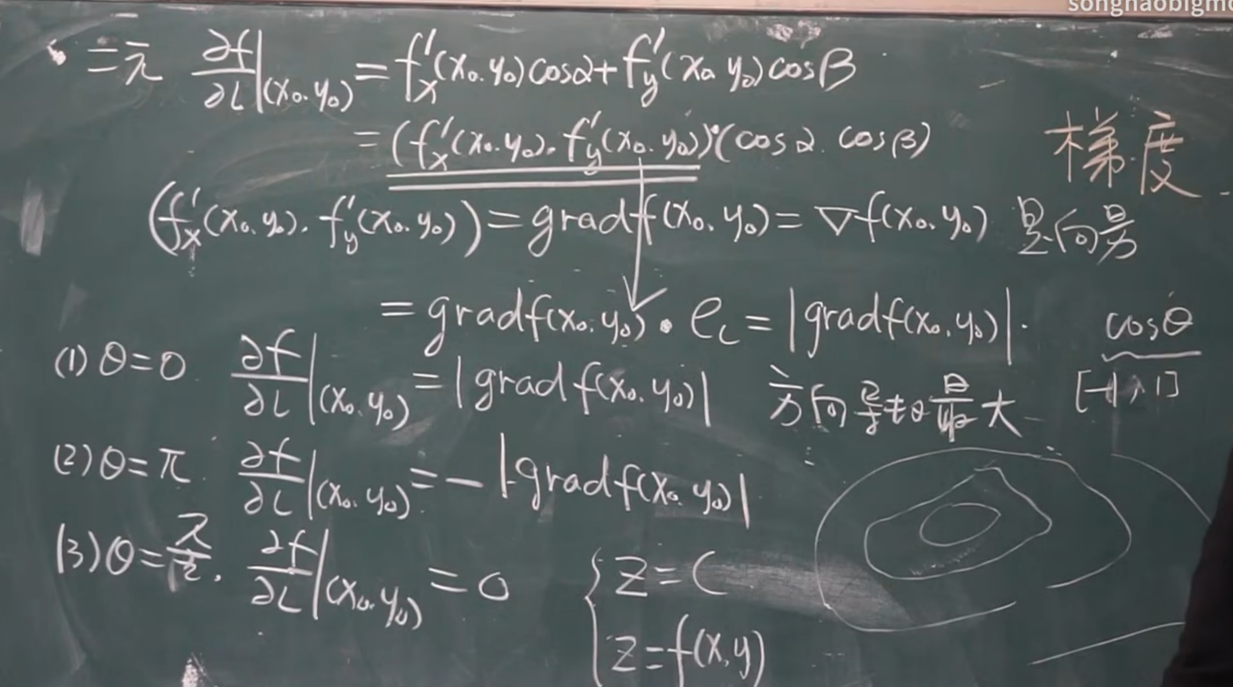 songhaobigmo
二元 ∂f/∂l|(x₀,y₀) = f'ₓ(x₀,y₀)cosα + f'ᵧ(x₀,y₀)cosβ
= (f'ₓ(x₀,y₀), f'ᵧ(x₀,y₀))·(cosα, cosβ)
梯度
(f'ₓ(x₀,y₀), f'ᵧ(x₀,y₀)) = gradf(x₀,y₀) = ∇f(x₀,y₀) 是向量
= gradf(x₀,y₀)·eₗ = |gradf(x₀,y₀)|· cosθ
[-1,1]
(1) θ=0. ∂f/∂l|(x₀,y₀) = |gradf(x₀,y₀)| 方向导数最大
(2) θ=π. ∂f/∂l|(x₀,y₀) = -|gradf(x₀,y₀)|
(3) θ=π/2. ∂f/∂l|(x₀,y₀) = 0
{ z=C
z=f(x,y)